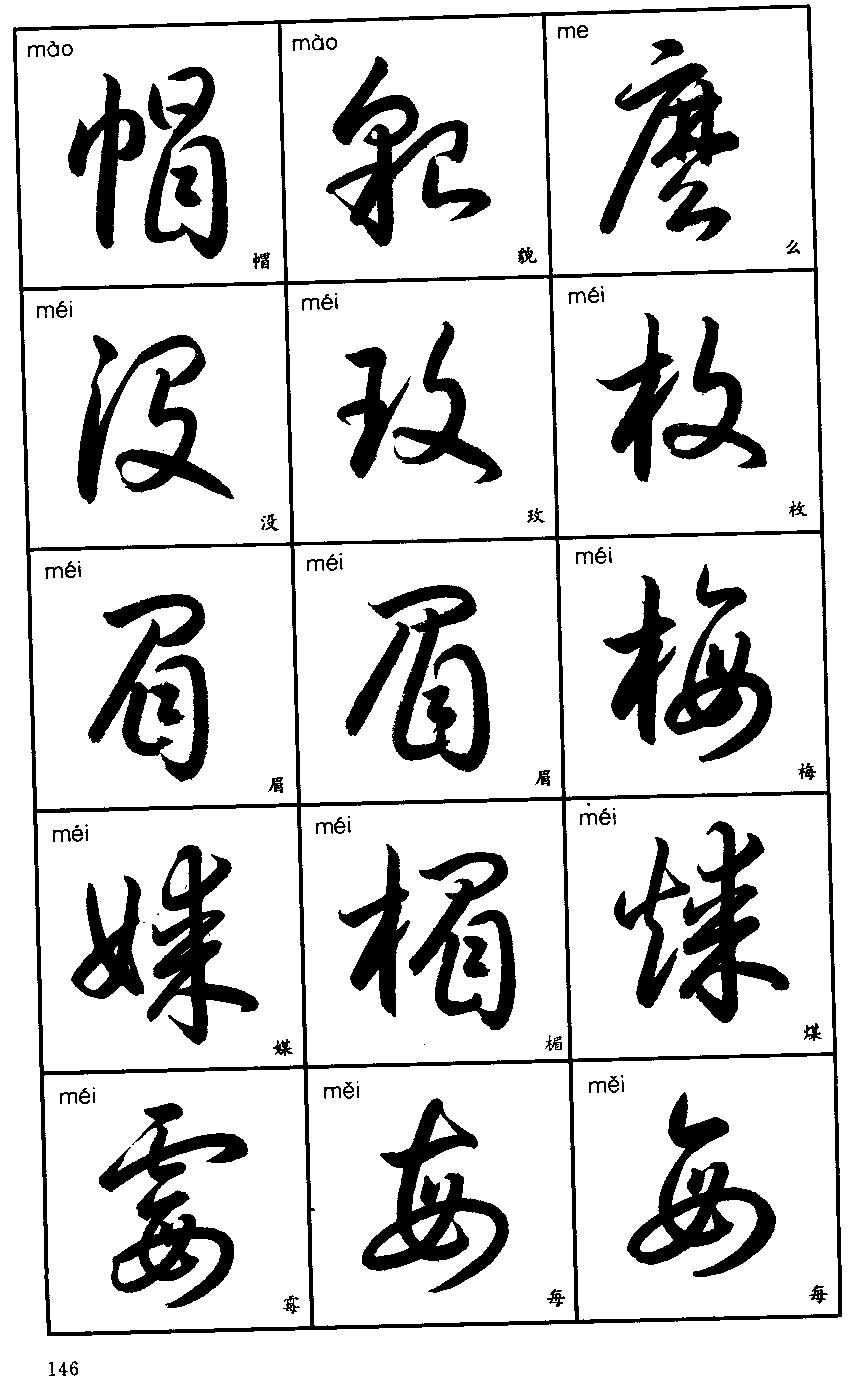 mào mào me
帽 貌 麽
帽 貌 么
méi méi méi
没 玫 枚
没 玫 枚
méi méi méi
眉 眉 梅
眉 眉 梅
méi méi méi
媒 楣 煤
媒 楣 煤
méi měi měi
霉 每 每
霉 每 每
146